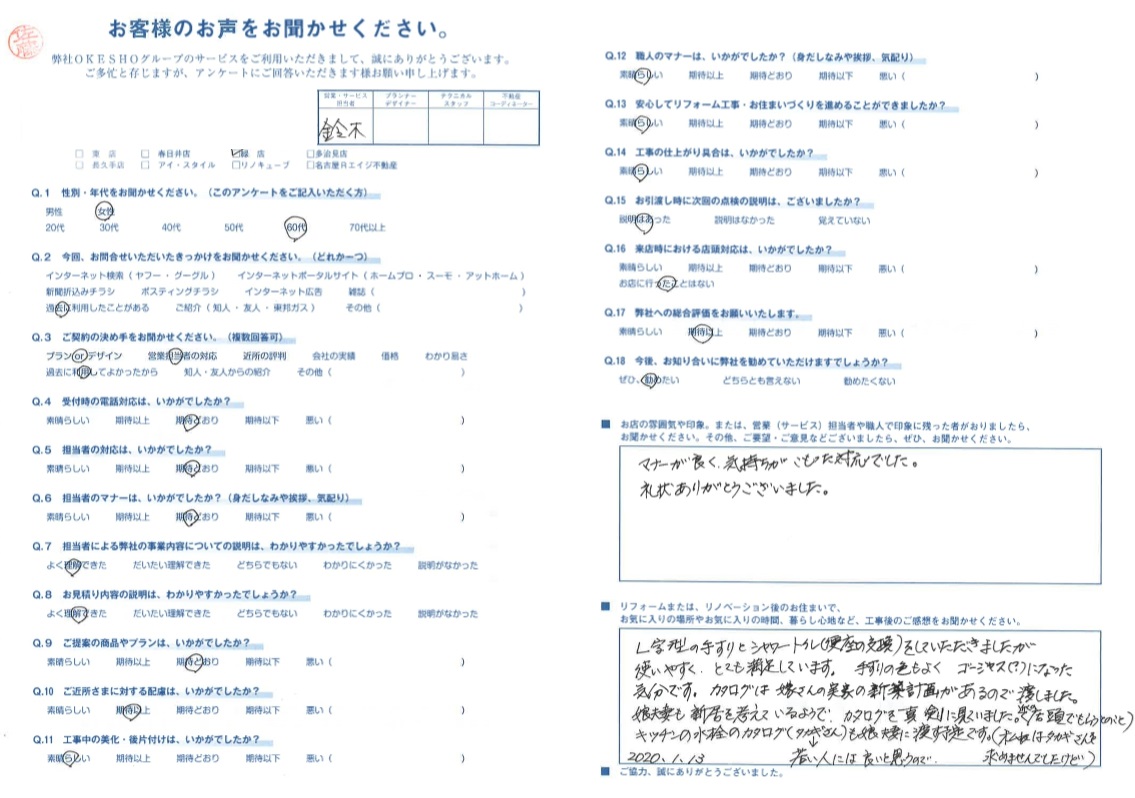 佐藤
お客様のお声をお聞かせください。
弊社OKESHOグループのサービスをご利用いただきまして、誠にありがとうございます。
ご多忙と存じますが、アンケートにご回答いただきます様お願い申し上げます。
営業・サービス担当者 プランナーデザイナー テクニカルスタッフ 不動産コーディネーター
鈴木
□ 東 店 □ 春日井店 ☑緑 店 □多治見店
□ 長久手店 □ アイ・スタイル □リノキューブ □名古屋Rエイジ不動産
Q.1 性別・年代をお聞かせください。（このアンケートをご記入いただく方）
男性 女性
20代 30代 40代 50代 60代 70代以上
Q.2 今回、お問合せいただいたきっかけをお聞かせください。（どれか一つ）
インターネット検索（ ヤフー ・ グーグル ） インターネットポータルサイト（ ホームプロ ・ スーモ ・ アットホーム ）
新聞折込みチラシ ポスティングチラシ インターネット広告 雑誌（ ）
過去に利用したことがある ご紹介（ 知人 ・ 友人 ・ 東邦ガス ） その他（ ）
Q.3 ご契約の決め手をお聞かせください。（複数回答可）
プランorデザイン 営業担当者の対応 近所の評判 会社の実績 価格 わかり易さ
過去に利用してよかったから 知人・友人からの紹介 その他（ ）
Q.4 受付時の電話対応は、いかがでしたか？
素晴らしい 期待以上 期待どおり 期待以下 悪い（ ）
Q.5 担当者の対応は、いかがでしたか？
素晴らしい 期待以上 期待どおり 期待以下 悪い（ ）
Q.6 担当者のマナーは、いかがでしたか？（身だしなみや挨拶、気配り）
素晴らしい 期待以上 期待どおり 期待以下 悪い（ ）
Q.7 担当者による弊社の事業内容についての説明は、わかりやすかったでしょうか？
よく理解できた だいたい理解できた どちらでもない わかりにくかった 説明がなかった
Q.8 お見積り内容の説明は、わかりやすかったでしょうか？
よく理解できた だいたい理解できた どちらでもない わかりにくかった 説明がなかった
Q.9 ご提案の商品やプランは、いかがでしたか？
素晴らしい 期待以上 期待どおり 期待以下 悪い（ ）
Q.10 ご近所さまに対する配慮は、いかがでしたか？
素晴らしい 期待以上 期待どおり 期待以下 悪い（ ）
Q.11 工事中の美化・後片付けは、いかがでしたか？
素晴らしい 期待以上 期待どおり 期待以下 悪い（ ）
Q.12 職人のマナーは、いかがでしたか？（身だしなみや挨拶、気配り）
素晴らしい 期待以上 期待どおり 期待以下 悪い（ ）
Q.13 安心してリフォーム工事・お住まいづくりを進めることができましたか？
素晴らしい 期待以上 期待どおり 期待以下 悪い（ ）
Q.14 工事の仕上がり具合は、いかがでしたか？
素晴らしい 期待以上 期待どおり 期待以下 悪い（ ）
Q.15 お引渡し時に次回の点検の説明は、ございましたか？
説明はあった 説明はなかった 覚えていない
Q.16 来店時における店頭対応は、いかがでしたか？
素晴らしい 期待以上 期待どおり 期待以下 悪い（ ）
お店に行ったことはない
Q.17 弊社への総合評価をお願いいたします。
素晴らしい 期待以上 期待どおり 期待以下 悪い（ ）
Q.18 今後、お知り合いに弊社を勧めていただけますでしょうか？
ぜひ、勧めたい どちらとも言えない 勧めたくない
■ お店の雰囲気や印象。または、営業（サービス）担当者や職人で印象に残った者がおりましたら、
お聞かせください。その他、ご要望・ご意見などございましたら、ぜひ、お聞かせください。
マナーが良く、気持ちがこもった対応でした。
礼状ありがとうございました。
■ リフォームまたは、リノベーション後のお住まいで、
お気に入りの場所やお気に入りの時間、暮らし心地など、工事後のご感想をお聞かせください。
L字型の手すりとシャワートイレ(便座の交換)をしていただきましたが
使いやすく、とても満足しています。 手すりの色もよく ゴージャス(?)になった
気分です。カタログは 嫁さんの実家の新築計画があるので 渡しました。
娘夫妻も新居を考えているようで、カタログを真剣に見ていました。(店頭でもらうとのこと)
キッチンの水栓のカタログ(タカギさん)も娘夫妻に渡す予定です。(私はタカギさんを
2020.1.13 若い人には良いと思うので 求めませんでしたけど)
■ ご協力、誠にありがとうございました。